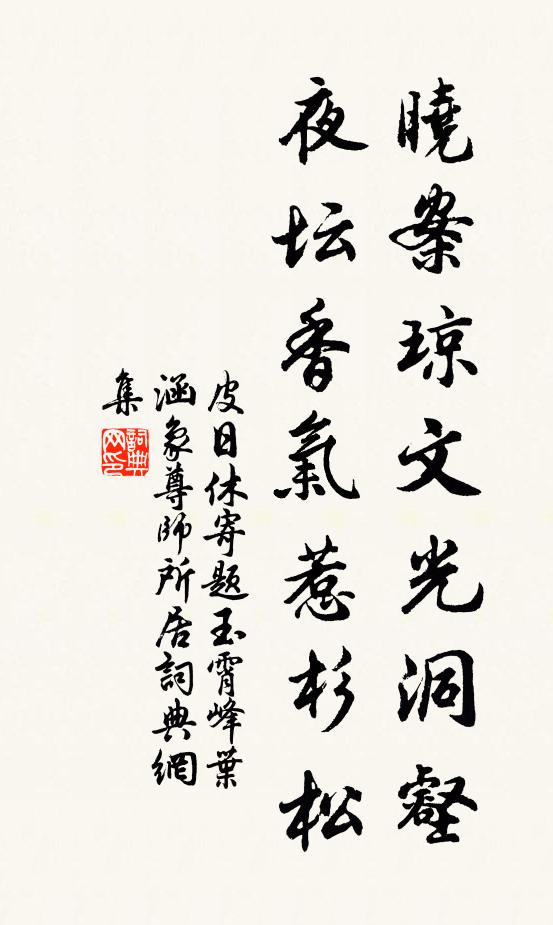 曉案琼文光洞壑
夜坛香氣惹杉松
皮日休寄題玉霄峰葉
涵象尊師所居詞典網
集
詞典
网印